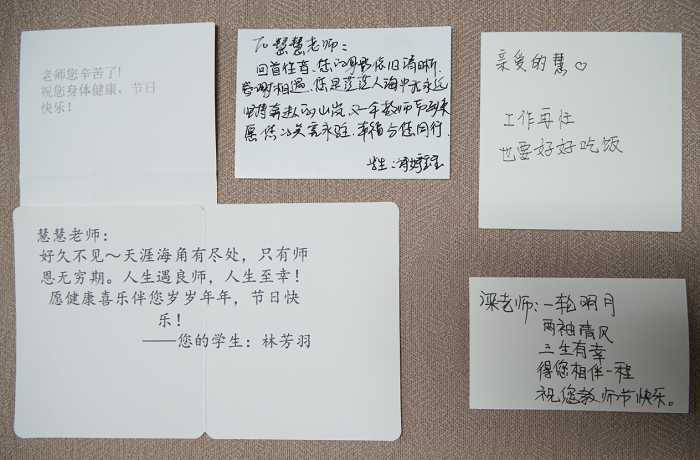 老师您辛苦了!
祝您身体健康，节日
快乐!
To 慧慧老师：
回首往昔，您的身影依旧清晰，
感谢相遇，您是茫茫人海中永远
值得奔赴的山岚，又一年教师节到来
愿您的笑容永驻，幸福与您同行.
学生：
亲爱的慧♡
工作再忙
也要好好吃饭
慧慧老师：
好久不见～天涯海角有尽处，只有师
恩无穷期。人生遇良师，人生至幸！
愿健康喜乐伴您岁岁年年，节日快
乐！
——您的学生：林芳羽
梁老师：一轮明月
两袖清风
三生有幸
得您相伴一程
祝您教师节快乐。